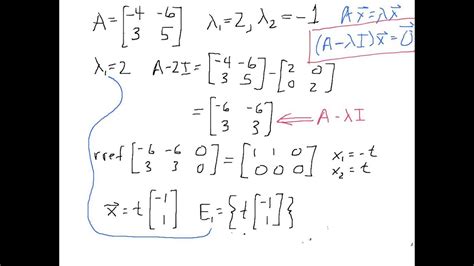 A = [-4 -6; 3 5] λ₁=2, λ₂=-1 Ax⃗=λx⃗
(A-λI)x⃗=0⃗
λ₁=2 A-2I = [-4 -6; 3 5] - [2 0; 0 2]
= [-6 -6; 3 3] ← A-λI
rref [-6 -6 0; 3 3 0] = [1 1 0; 0 0 0] x₁=-t
x₂=t
x⃗=t[-1; 1] E₁={t[-1; 1]}